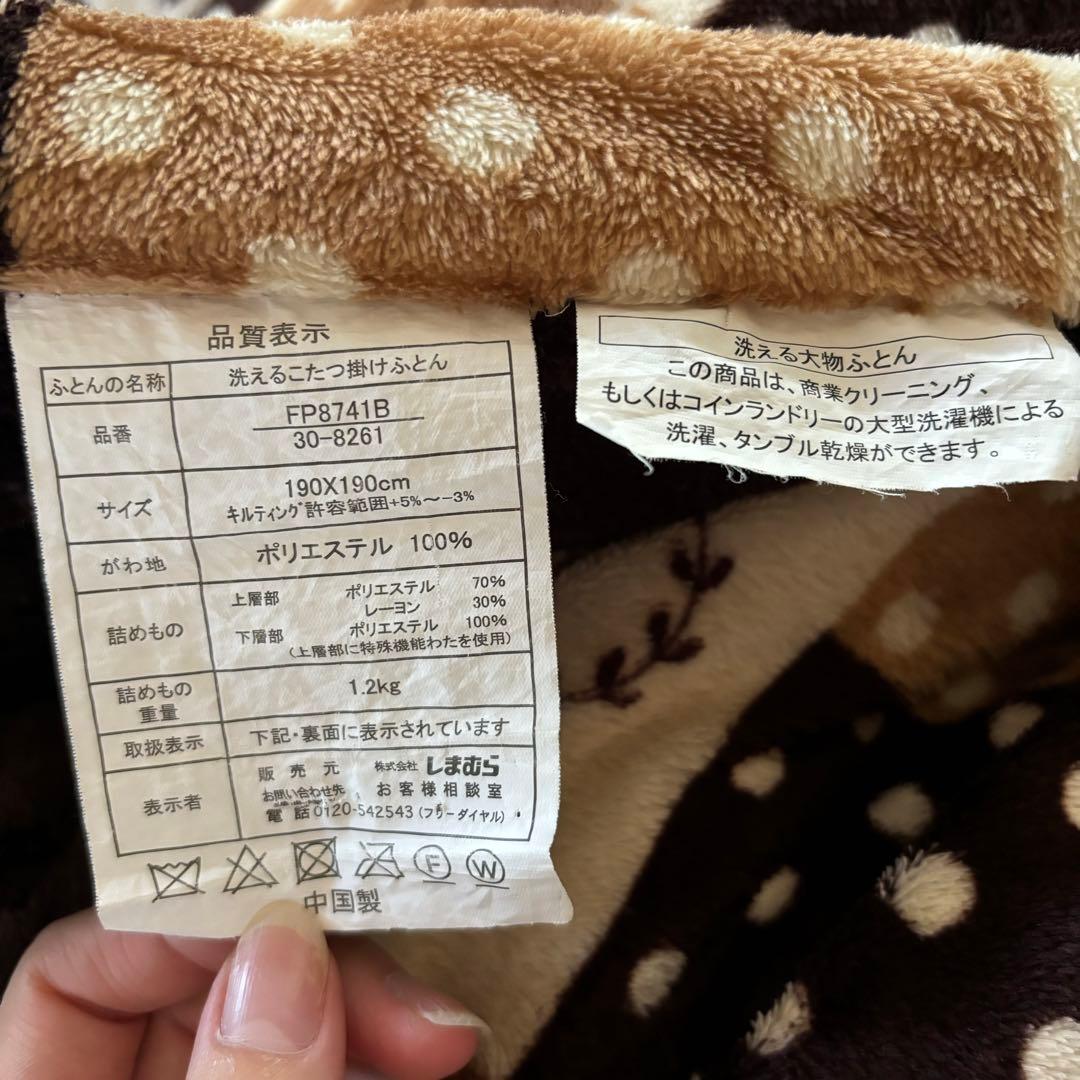 品質表示
ふとんの名称 洗えるこたつ掛けふとん
品番 FP8741B
30-8261
サイズ 190X190cm
キルティング許容範囲+5%〜-3%
がわ地 ポリエステル 100%
詰めもの 上層部 ポリエステル 70%
レーヨン 30%
下層部 ポリエステル 100%
(上層部に特殊機能わたを使用)
詰めもの
重量 1.2kg
取扱表示 下記・裏面に表示されています
表示者 販売元 株式会社 しまむら
お問い合わせ先 お客様相談室
電話0120-542543(フリーダイヤル)
F W
中国製
洗える大物ふとん
この商品は、商業クリーニング、
もしくはコインランドリーの大型洗濯機による
洗濯、タンブル乾燥ができます。